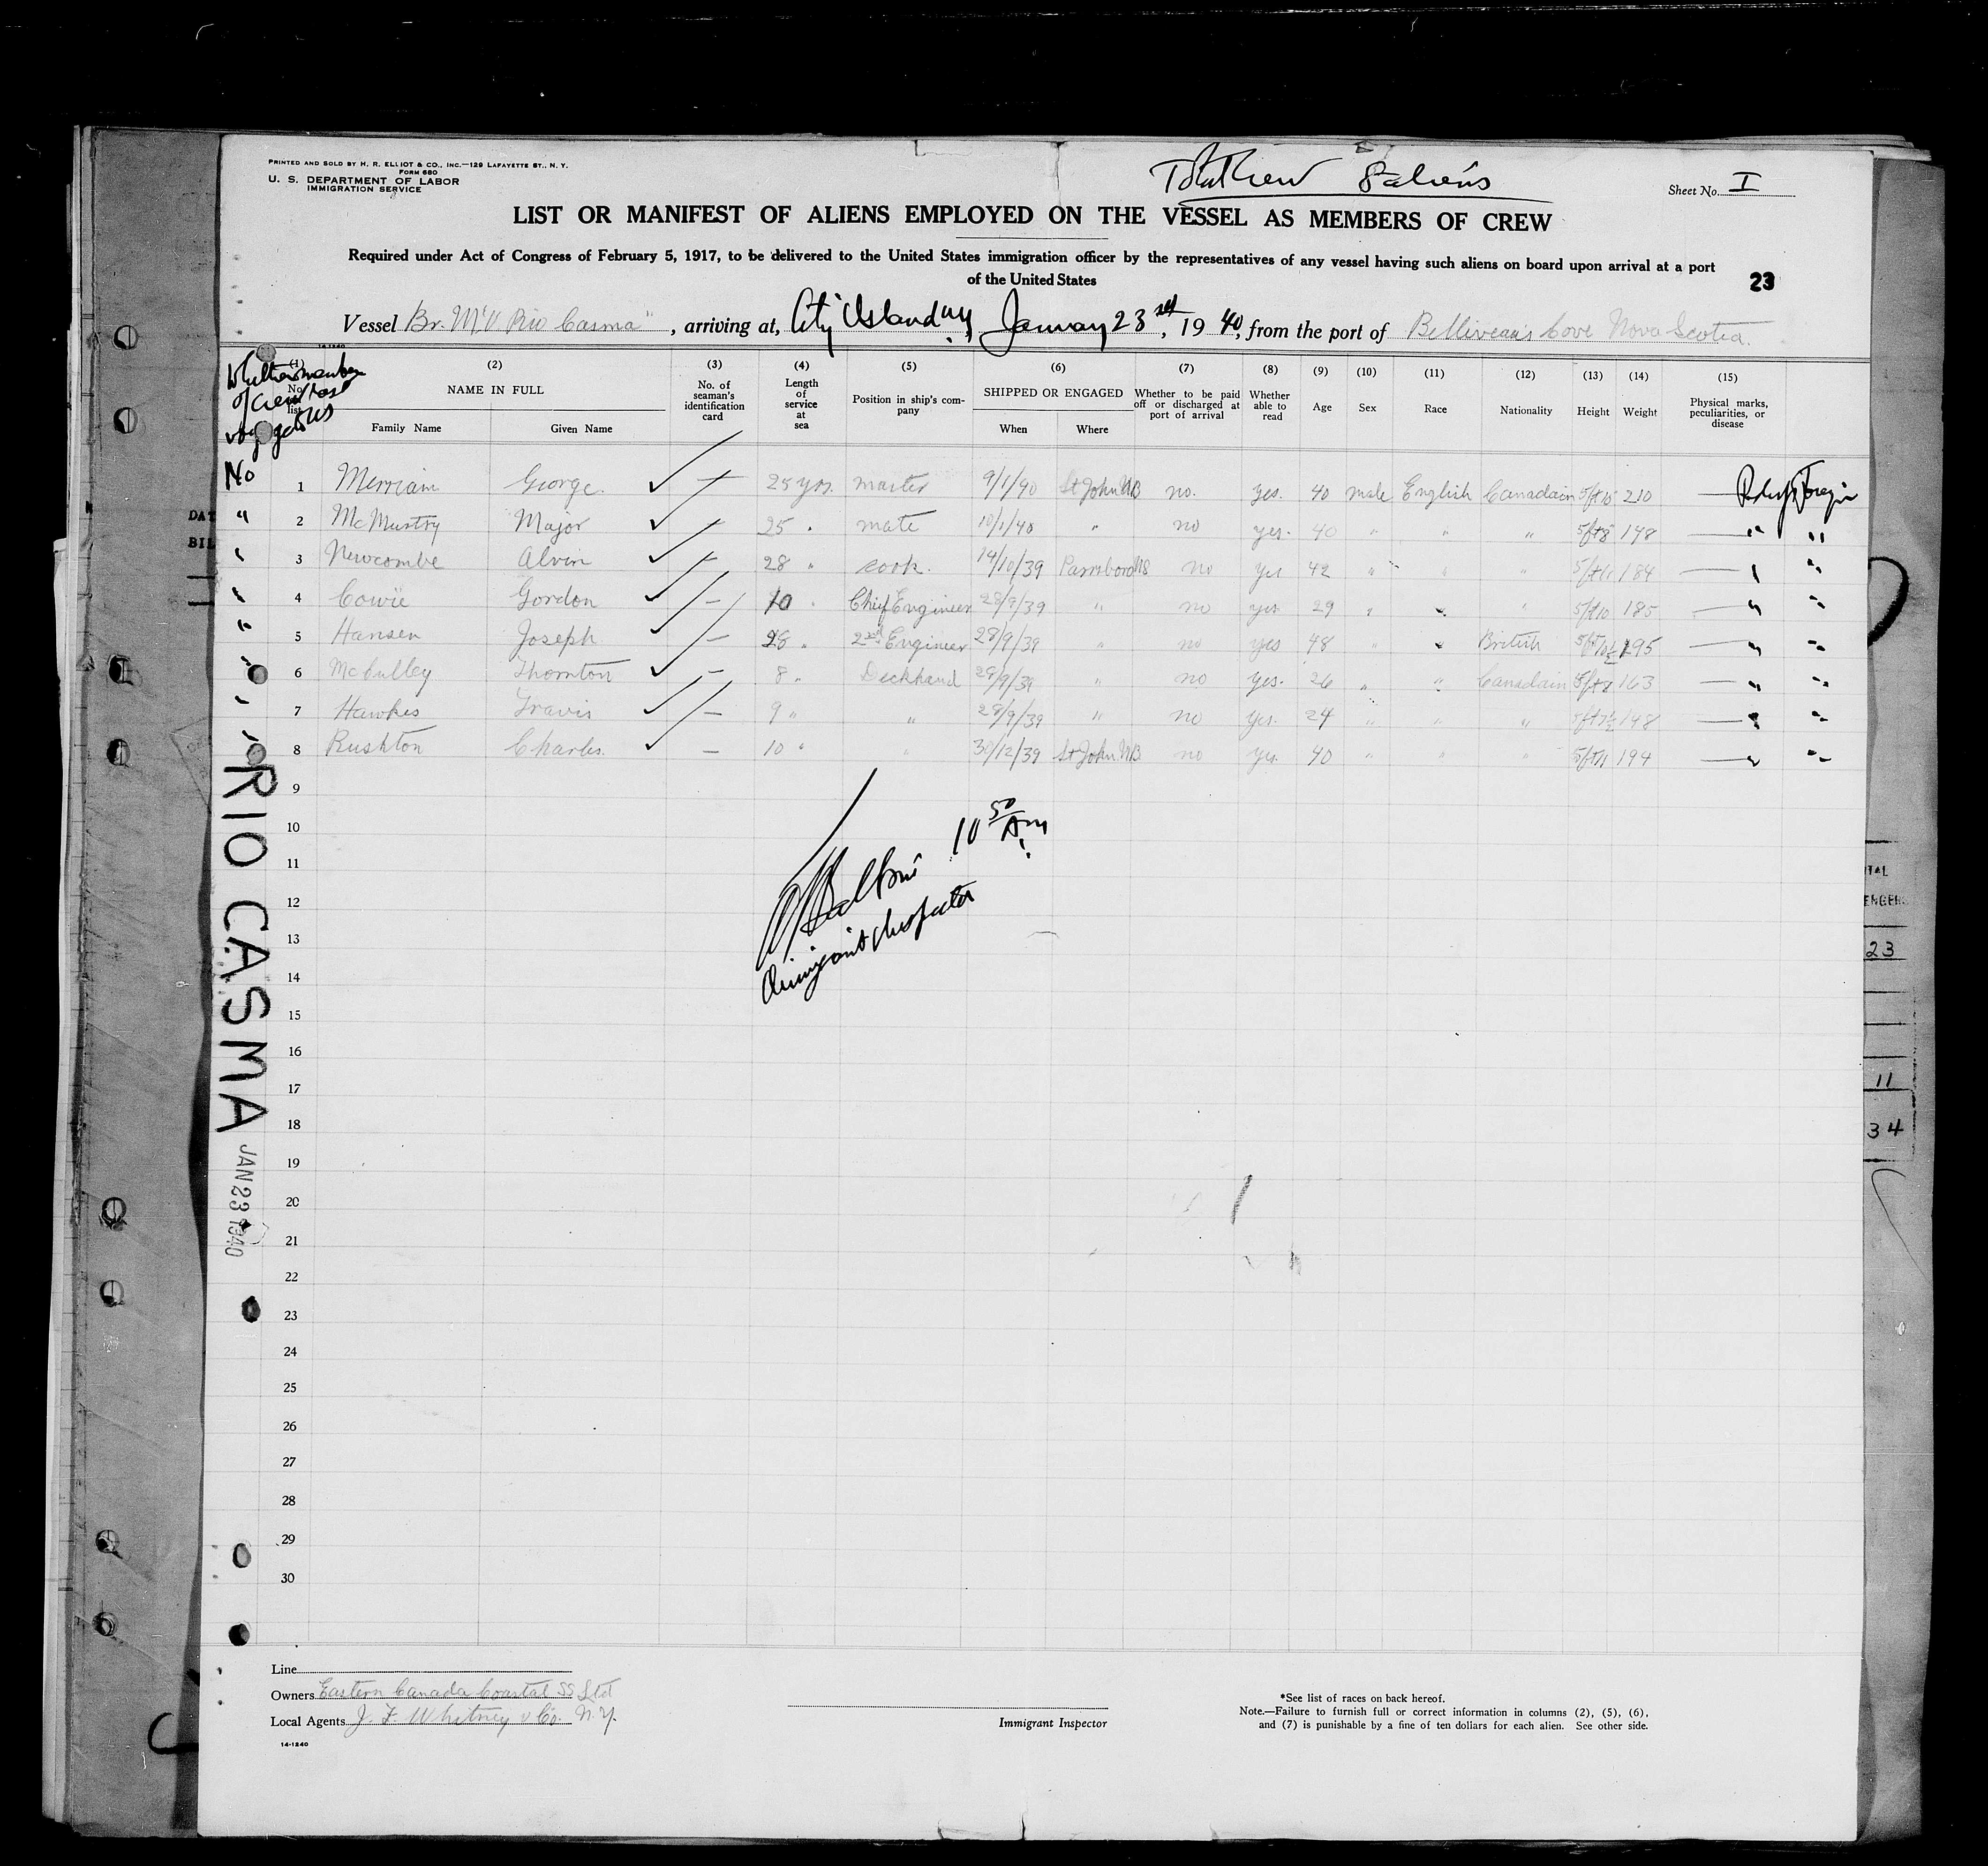 PRINTED AND SOLD BY H. R. ELLIOT & CO., INC.—129 LAFAYETTE ST., N. Y.
FORM 680
U. S. DEPARTMENT OF LABOR
IMMIGRATION SERVICE
Total Crew 8 aliens
Sheet No. I
LIST OR MANIFEST OF ALIENS EMPLOYED ON THE VESSEL AS MEMBERS OF CREW
Required under Act of Congress of February 5, 1917, to be delivered to the United States immigration officer by the representatives of any vessel having such aliens on board upon arrival at a port
of the United States
23
Vessel Br. M/V Rio Casma", arriving at, City Island NY, January 23rd, 1940, from the port of Belliveau's Cove Nova Scotia.
14-1240
Whether member of crew last voyage to US
(1) No. list (2) NAME IN FULL Family Name Given Name (3) No. of seaman's identification card (4) Length of service at sea (5) Position in ship's company (6) SHIPPED OR ENGAGED When Where (7) Whether to be paid off or discharged at port of arrival (8) Whether able to read (9) Age (10) Sex (11) Race (12) Nationality (13) Height (14) Weight (15) Physical marks, peculiarities, or disease
No 1 Merriam George. — 25 yrs. master 9/1/40 St John NB no. yes. 40 male English Canadain 5ft10 210 — Foreign
" 2 McMurtry Major — 25 " mate 10/1/40 " no yes. 40 " " " 5ft8 148 — " "
" 3 Newcombe Alvin — 28 " cook. 14/10/39 Parrsboro NS no yes 42 " " " 5ft11 184 — " "
" 4 Cowie Gordon — 10 " Chief Engineer 28/9/39 " no yes. 29 " " " 5ft10 185 — " "
" 5 Hansen Joseph — 28 " 2nd Engineer 28/9/39 " no yes 48 " " British 5ft10½ 195 — " "
" 6 McCulley Thornton — 8 " Deckhand 28/9/39 " no yes. 26 " " Canadain 5ft8 163 — " "
" 7 Hawkes Travis — 9 " " 28/9/39 " no yes. 24 " " " 5ft7½ 148 — " "
" 8 Rushton Charles. — 10 " " 30/12/39 St John. NB no yes. 40 " " " 5ft11 194 — " "
9
10
11
12
13
14
15
16
17
18
19
20
21
22
23
24
25
26
27
28
29
30
10 50 Am
Immigrant Inspector
RIO CASMA
JAN 23 1940
Line
Owners Eastern Canada Coastal SS Ltd
Local Agents J. F. Whitney & Co. N.Y.
14-1240
Immigrant Inspector
*See list of races on back hereof.
Note.—Failure to furnish full or correct information in columns (2), (5), (6),
and (7) is punishable by a fine of ten dollars for each alien. See other side.
DAT
BIL
23
11
34